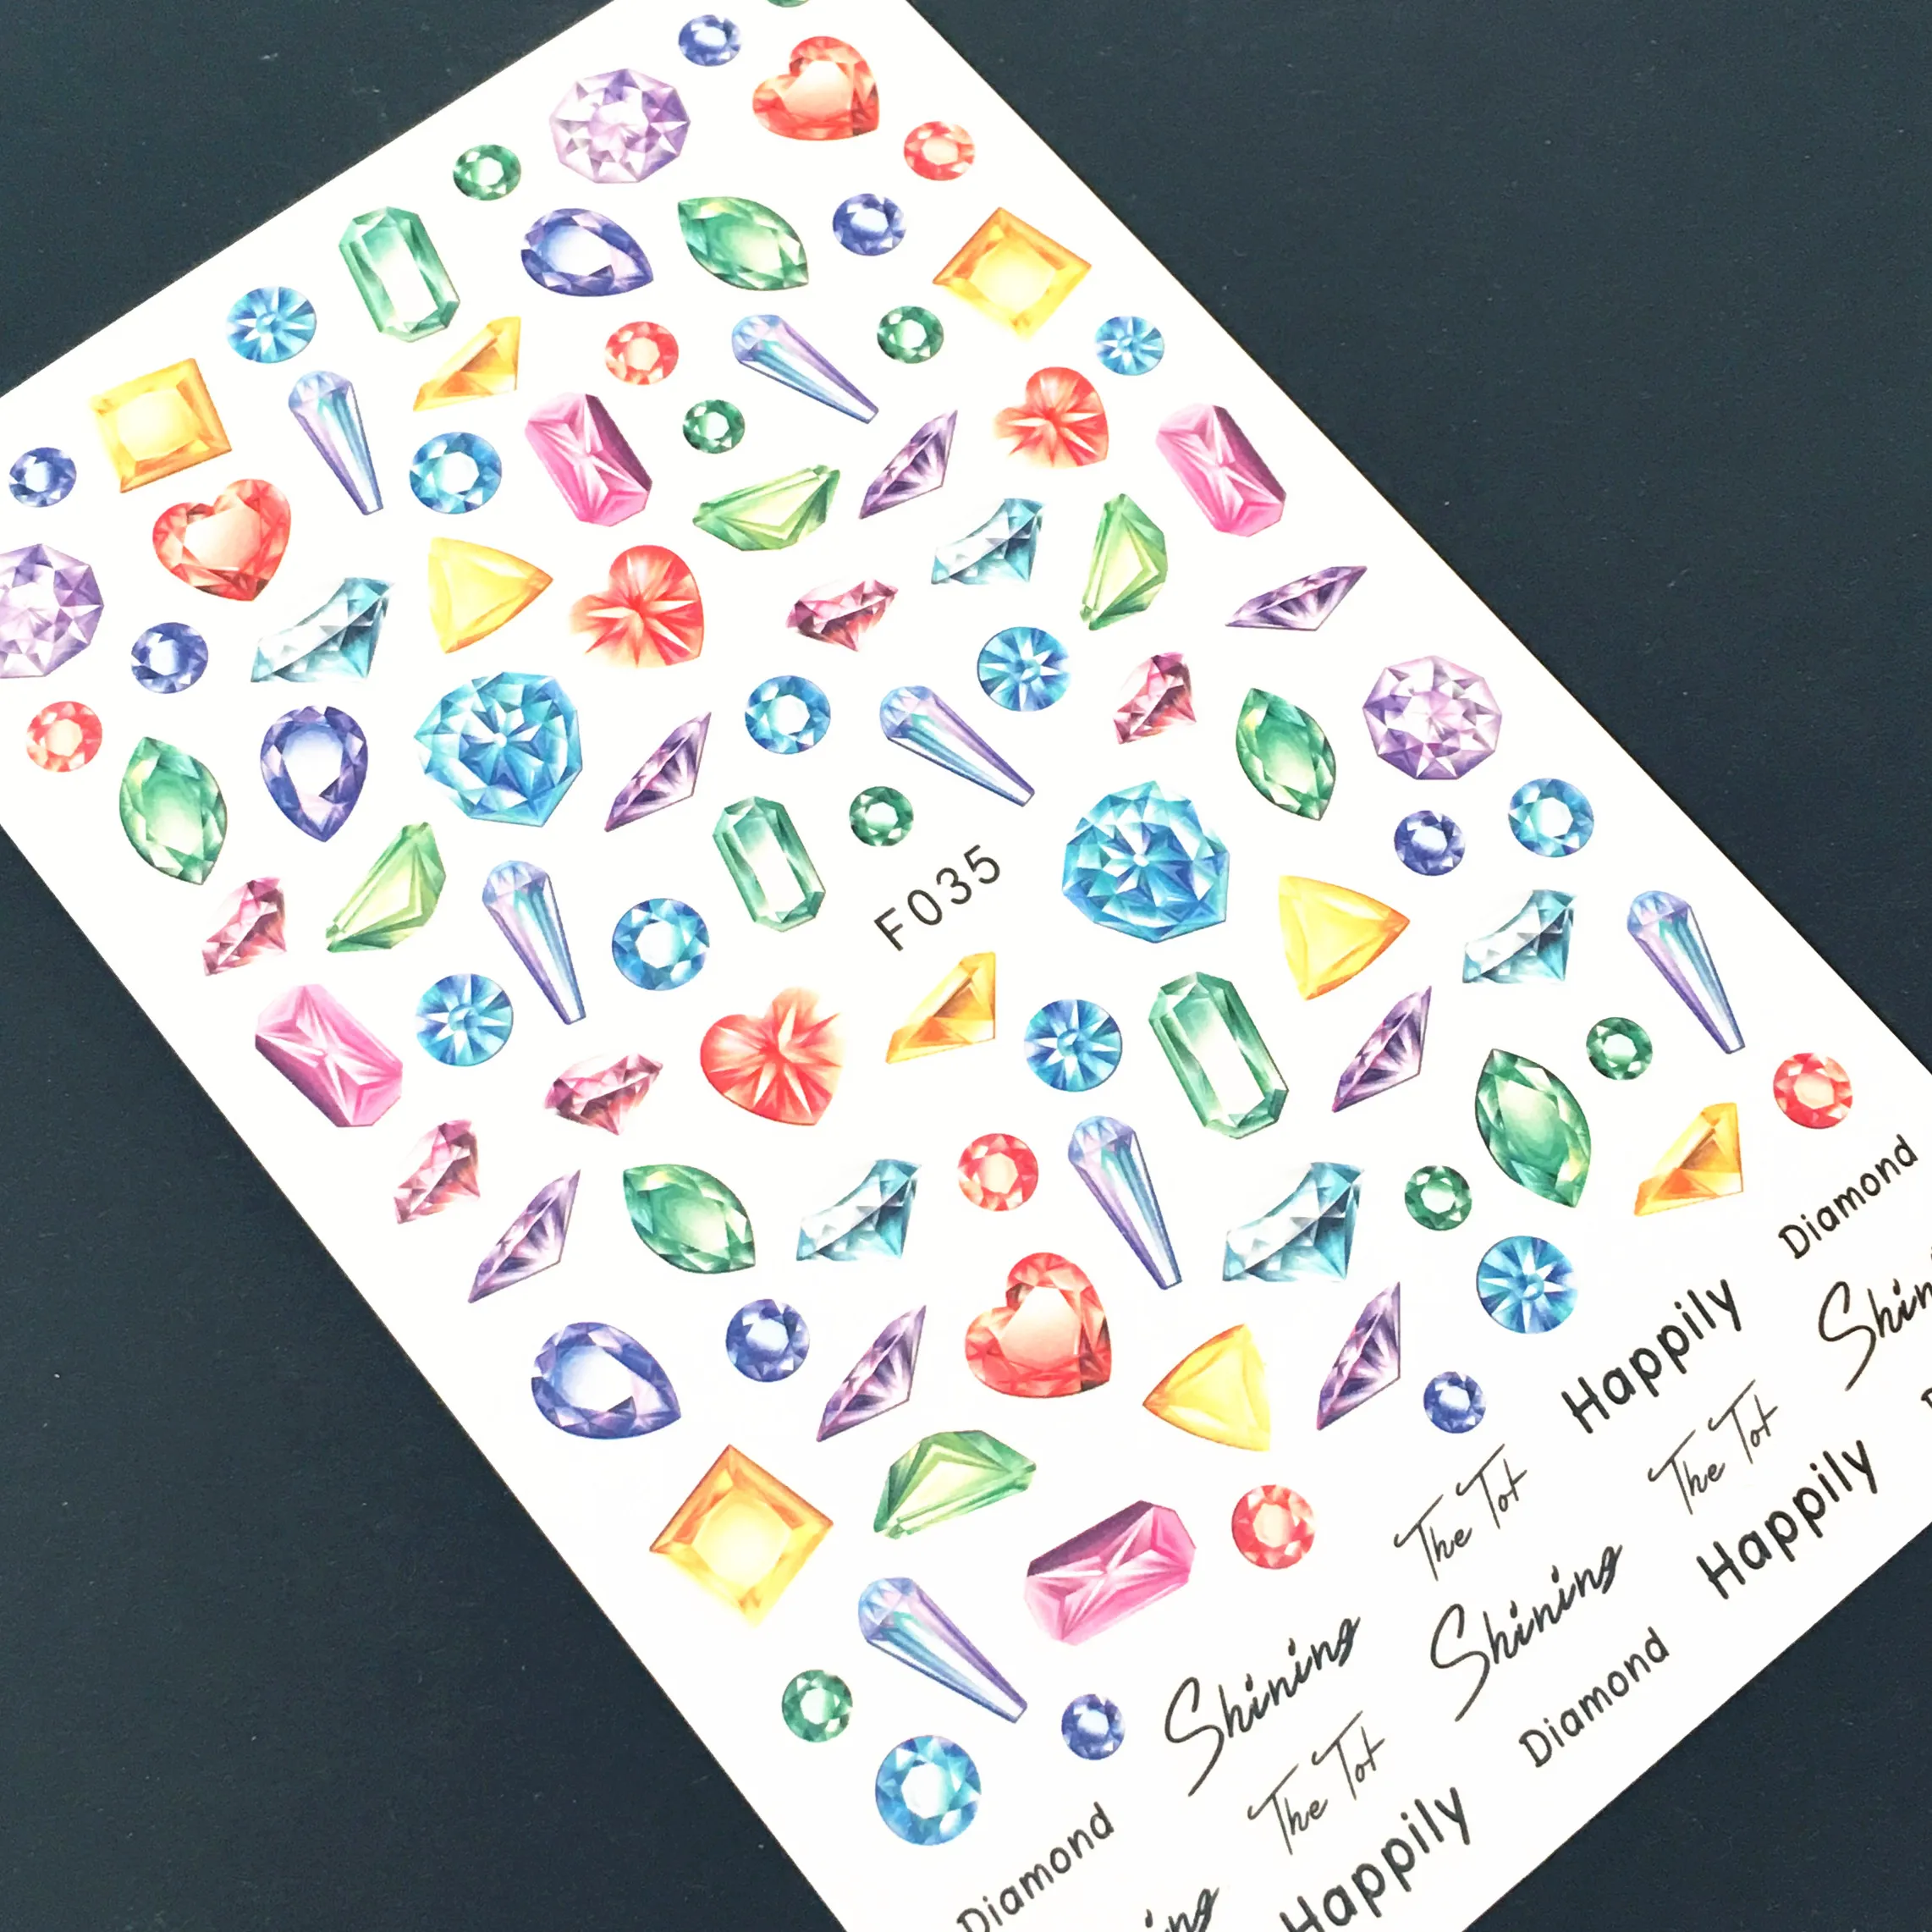 F035
Diamond
Happily
Shin
The Tot
The Tot
Happily
Shining
Shining
Diamond
The Tot
Happily
Diamond
ing